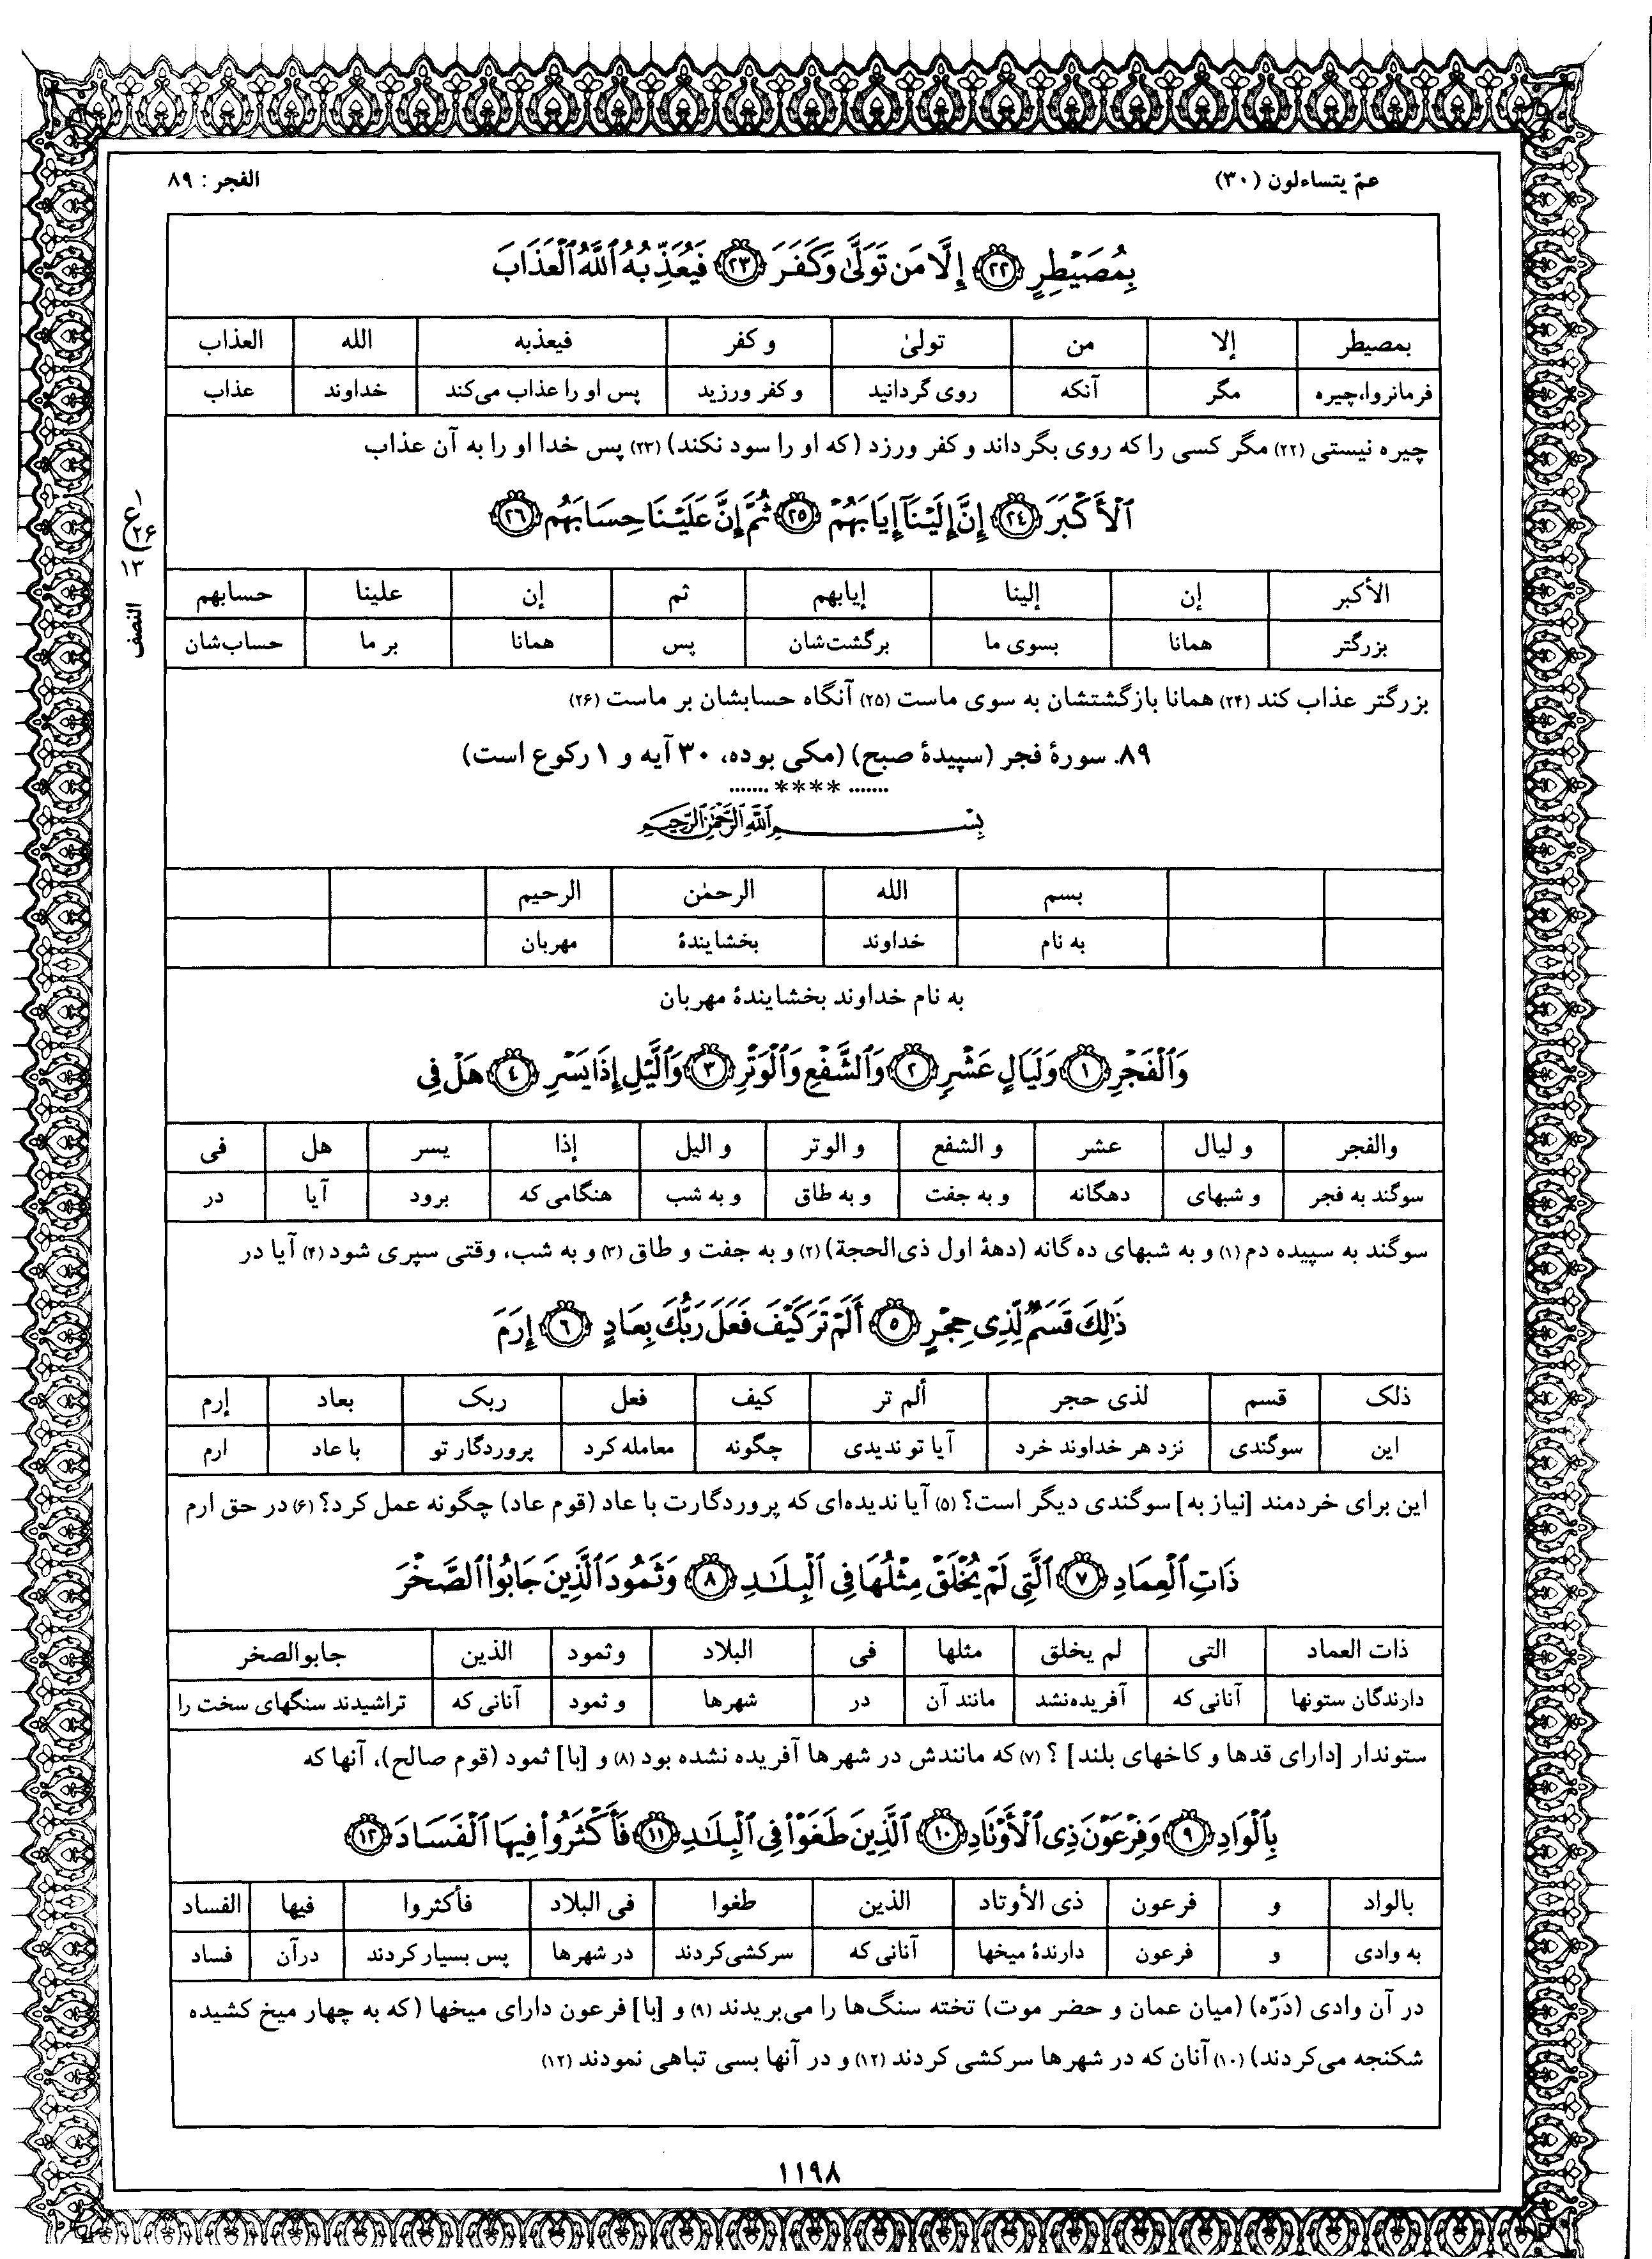 عمّ يتساءلون (٣٠)
الفجر : ٨٩
بِمُصَيۡطِرٍ ٢٢ إِلَّا مَن تَوَلَّىٰ وَكَفَرَ ٢٣ فَيُعَذِّبُهُ ٱللَّهُ ٱلۡعَذَابَ
بمصيطر إلا من تولىٰ و كفر فيعذبه الله العذاب
فرمانروا،چیره مگر آنکه روی گردانید و کفر ورزید پس او را عذاب می‌کند خداوند عذاب
چیره نیستی (۲۲) مگر کسی را که روی بگرداند و کفر ورزد (که او را سود نکند) (۲۳) پس خدا او را به آن عذاب
ٱلۡأَكۡبَرَ ٢٤ إِنَّ إِلَيۡنَآ إِيَابَهُمۡ ٢٥ ثُمَّ إِنَّ عَلَيۡنَا حِسَابَهُم ٢٦
ع
۲۶
۱۳
النصف
الأكبر إن إلينا إيابهم ثم إن علينا حسابهم
بزرگتر همانا بسوی ما برگشت‌شان پس همانا بر ما حساب‌شان
بزرگتر عذاب کند (۲۴) همانا بازگشتشان به سوی ماست (۲۵) آنگاه حسابشان بر ماست (۲۶)
۸۹. سورهٔ فجر (سپیدهٔ صبح) (مکی بوده، ۳۰ آیه و ۱ رکوع است)
....... **** .......
بِسۡمِ ٱللَّهِ ٱلرَّحۡمَٰنِ ٱلرَّحِيمِ
بسم الله الرحمٰن الرحيم
به نام خداوند بخشایندهٔ مهربان
به نام خداوند بخشایندهٔ مهربان
وَٱلۡفَجۡرِ ١ وَلَيَالٍ عَشۡرٍ ٢ وَٱلشَّفۡعِ وَٱلۡوَتۡرِ ٣ وَٱلَّيۡلِ إِذَا يَسۡرِ ٤ هَلۡ فِي
والفجر و ليال عشر و الشفع و الوتر و اليل إذا يسر هل فى
سوگند به فجر و شبهای دهگانه و به جفت و به طاق و به شب هنگامی که برود آیا در
سوگند به سپیده دم (۱) و به شبهای ده گانه (دههٔ اول ذی‌الحجة) (۲) و به جفت و طاق (۳) و به شب، وقتی سپری شود (۴) آیا در
ذَٰلِكَ قَسَمٞ لِّذِي حِجۡرٍ ٥ أَلَمۡ تَرَ كَيۡفَ فَعَلَ رَبُّكَ بِعَادٍ ٦ إِرَمَ
ذلک قسم لذی حجر ألم تر کیف فعل ربک بعاد إرم
این سوگندی نزد هر خداوند خرد آیا تو ندیدی چگونه معامله کرد پروردگار تو با عاد ارم
این برای خردمند [نیاز به] سوگندی دیگر است؟ (۵) آیا ندیده‌ای که پروردگارت با عاد (قوم عاد) چگونه عمل کرد؟ (۶) در حق ارم
ذَاتِ ٱلۡعِمَادِ ٧ ٱلَّتِي لَمۡ يُخۡلَقۡ مِثۡلُهَا فِي ٱلۡبِلَٰدِ ٨ وَثَمُودَ ٱلَّذِينَ جَابُواْ ٱلصَّخۡرَ
ذات العماد التى لم يخلق مثلها فى البلاد وثمود الذين جابوالصخر
دارندگان ستونها آنانی که آفریده‌نشد مانند آن در شهرها و ثمود آنانی که تراشیدند سنگهای سخت را
ستوندار [دارای قدها و کاخهای بلند] ؟ (۷) که مانندش در شهرها آفریده نشده بود (۸) و [با] ثمود (قوم صالح)، آنها که
بِٱلۡوَادِ ٩ وَفِرۡعَوۡنَ ذِي ٱلۡأَوۡتَادِ ١٠ ٱلَّذِينَ طَغَوۡاْ فِي ٱلۡبِلَٰدِ ١١ فَأَكۡثَرُواْ فِيهَا ٱلۡفَسَادَ ١٢
بالواد و فرعون ذى الأوتاد الذين طغوا فى البلاد فأكثروا فيها الفساد
به وادی و فرعون دارندهٔ میخها آنانی که سرکشی‌کردند در شهرها پس بسیار کردند درآن فساد
در آن وادی (دَرّه) (میان عمان و حضر موت) تخته سنگ‌ها را می‌بریدند (۹) و [با] فرعون دارای میخها (که به چهار میخ کشیده
شکنجه می‌کردند) (۱۰) آنان که در شهرها سرکشی کردند (۱۲) و در آنها بسی تباهی نمودند (۱۲)
۱۱۹۸